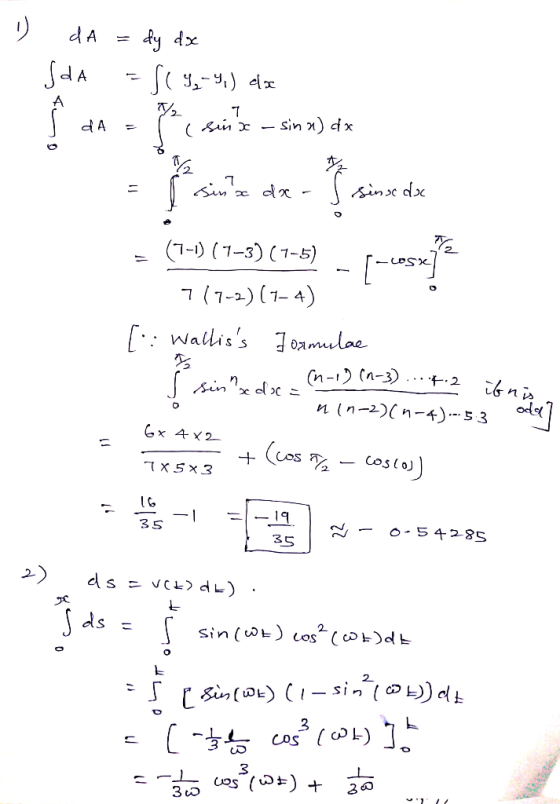 1) dA = dy dx
∫dA = ∫(y₂-y₁) dx
∫₀ᴬ dA = ∫₀^(π/2) (sin⁷x - sin x) dx
= ∫₀^(π/2) sin⁷x dx - ∫₀^(π/2) sinx dx
= (7-1)(7-3)(7-5) / 7(7-2)(7-4) - [-cosx]₀^(π/2)
[∵ Wallis's Formulae
∫₀^(π/2) sinⁿx dx = (n-1)(n-3)....4.2 / n(n-2)(n-4)...5.3 if n is odd]
= 6x4x2 / 7x5x3 + (cos π/2 - cos(0))
= 16/35 - 1 = -19/35 ≈ - 0.54285
2) ds = v(t)dt) .
∫₀ˣ ds = ∫₀ᵗ sin(ωt) cos²(ωt)dt
= ∫₀ᵗ [sin(ωt) (1-sin²(ωt))dt
= [-1/3 1/ω cos³(ωt)]₀ᵗ
= -1/3ω cos³(ωt) + 1/3ω